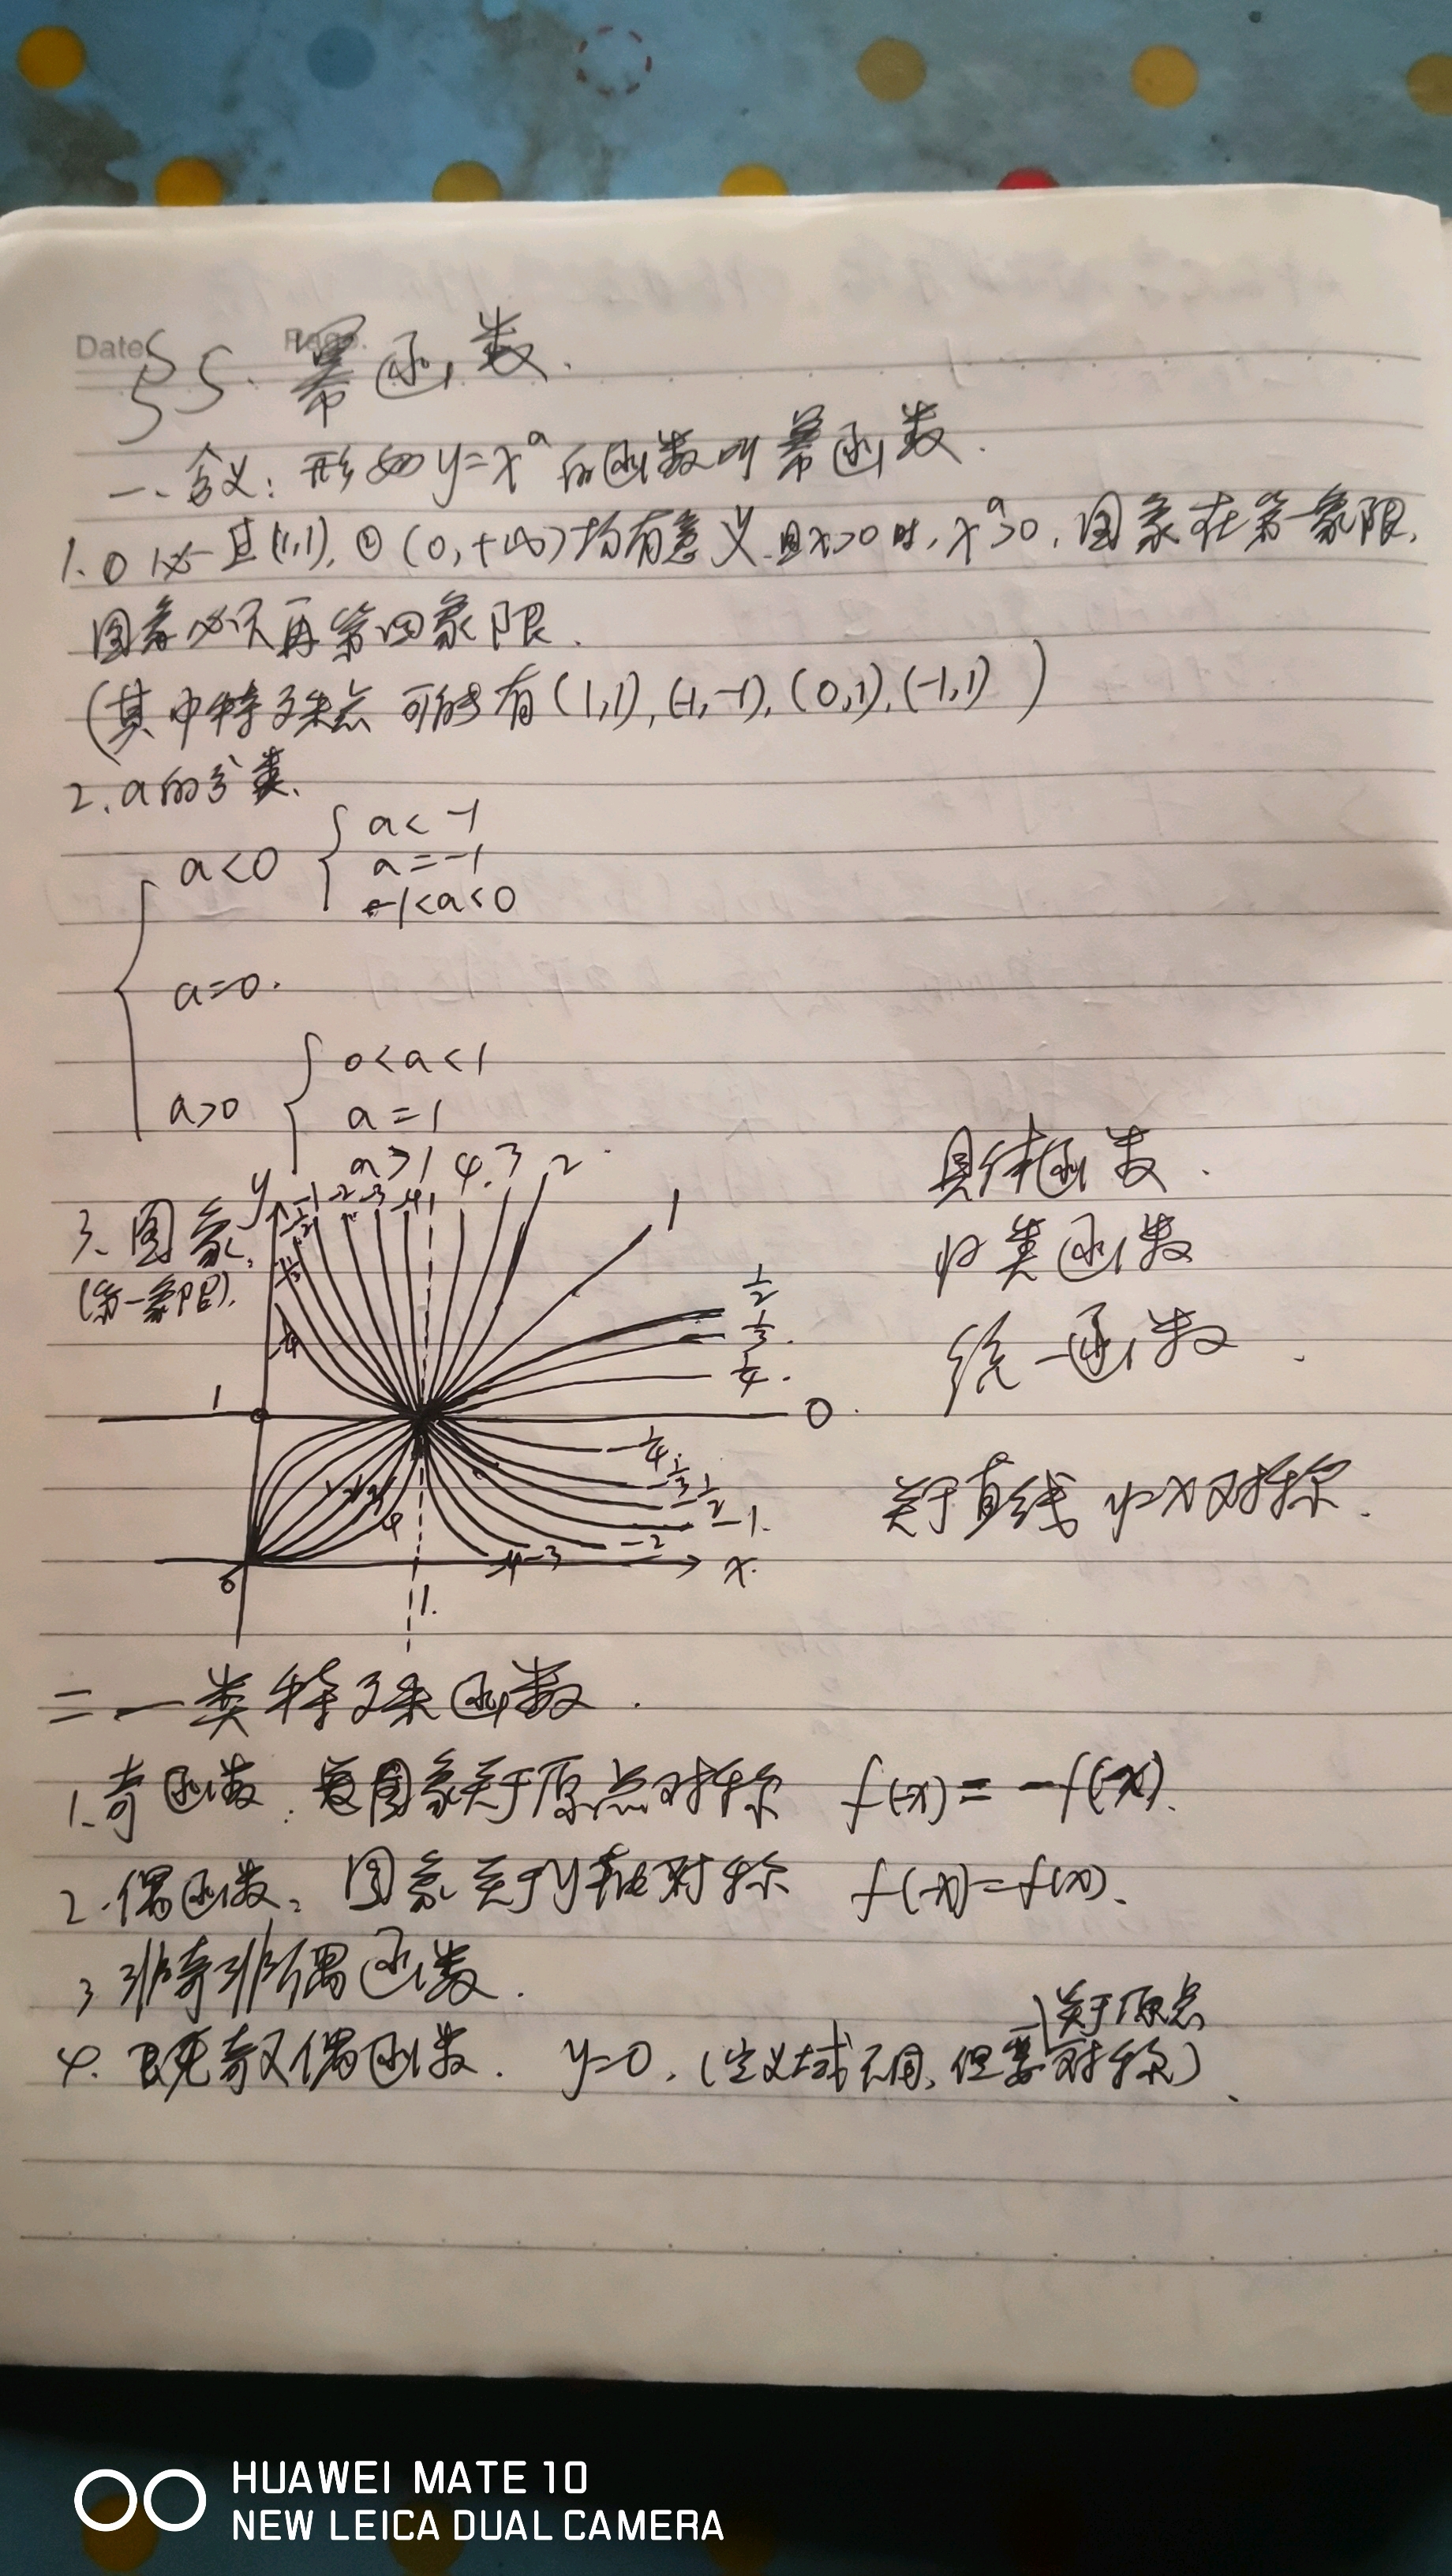 Date Page.
§5. 幂函数.
一、含义: 形如 y=x^a 的函数叫幂函数.
1. ① 必 且(1,1), ② (0,+∞)均有意义.且x>0时, x^a>0, 图象在第一象限,
图象必不再第四象限.
(其中特殊点 可能有(1,1), (-1,-1), (0,1), (-1,1) )
2. a的分类.
a<0 { a<-1
a=-1
-1<a<0
a=0.
a>0 { 0<a<1
a=1
a>1
3. 图象.
(第一象限).
y
-1/2 -1 -2 -3 -4 4. 3 2 1
1/2
1/3
1/4
1
0
-1/4
-1/3
-1/2
-1
-2
-3
-4
4
0
x
1.
具体函数.
归类函数
统一函数.
关于直线 y=x对称.
二 一类特殊函数.
1.奇函数: 图象关于原点对称 f(x)=-f(-x).
2.偶函数: 图象关于y轴对称 f(-x)=f(x).
3 非奇非偶函数.
4. 既奇又偶函数. y=0. (定义域不同, 但要关于原点对称).
HUAWEI MATE 10
NEW LEICA DUAL CAMERA